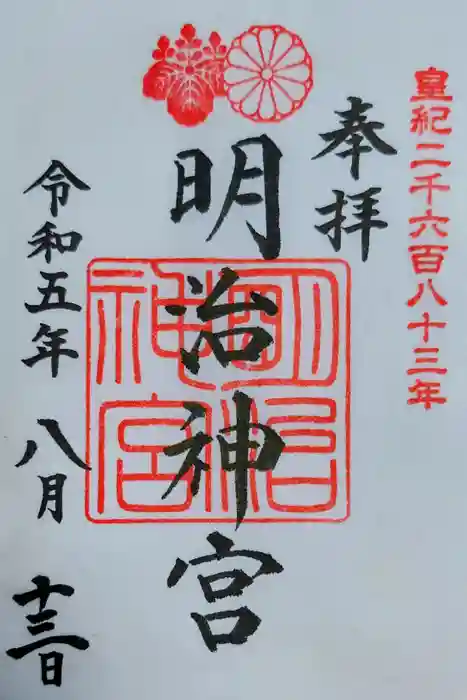 皇紀二千六百八十三年
奉拝
明治神宮
明治神宮
令和五年八月十三日